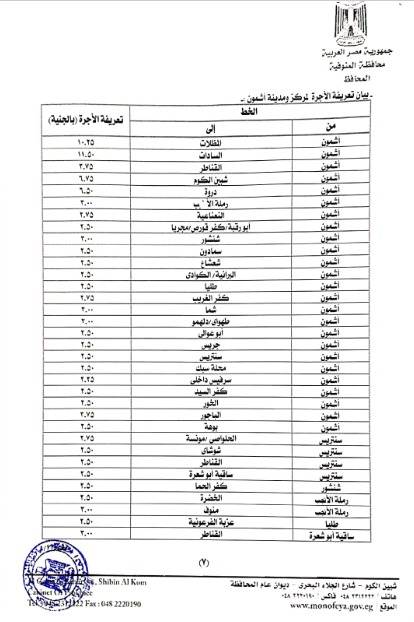 جمهورية مصر العربية
محافظة المنوفية
المحافظ
ـ بيان تعريفة الأجرة لمركز ومدينة أشمون :ـ
الخط تعريفة الأجرة (بالجنية)
من إلى
أشمون المظلات ١٠.٢٥
أشمون السادات ١١.٥٠
أشمون القناطر ٣.٧٥
أشمون شبين الكوم ٦.٧٥
أشمون دروة ٦.٥٠
أشمون رملة ٣.٠٠
أشمون النعناعية ٢.٧٥
أشمون أبو رقبة/كفر قورص/مجريا ٢.٥٠
أشمون شنشور ٣.٠٠
أشمون سمادون ٢.٥٠
أشمون شعشاع ٢.٥٠
أشمون البرانية/الكوادى ٢.٥٠
أشمون طليا ٢.٥٠
أشمون كفر الغريب ٢.٧٥
أشمون شما ٣.٠٠
أشمون طهواى/دلهمو ٣.٠٠
أشمون أبو عوالى ٢.٥٠
أشمون جريس ٢.٥٠
أشمون سنتريس ٢.٥٠
أشمون محلة سبك ٢.٥٠
أشمون سرفيس داخلى ٢.٢٥
أشمون كفر السيد ٢.٥٠
أشمون الخور ٢.٥٠
أشمون الباجور ٣.٧٥
أشمون بوهة ٢.٥٠
سنتريس الحلواصى/مونسة ٢.٧٥
سنتريس شوشاى ٢.٥٠
سنتريس القناطر ٢.٥٠
سنتريس ساقية أبو شعرة ٢.٥٠
شنشور كفر الحما ٢.٥٠
رملة الأنجب الخضرة ٢.٥٠
رملة الأنجب منوف ٣.٠٠
طليا عزبة الفرعونية ٢.٥٠
ساقية أبو شعرة القناطر ٣.٠٠
(٧)
شبين الكوم - شارع الجلاء البحرى - ديوان عام المحافظة
هاتف ٠٤٨ ٢٣١٢٢٢٢ فاكس : ٠٤٨ ٢٢٢٠١٩٠
الموقع www.monofeya.gov.eg
Shibin Al Kom
Fax : 048 2220190